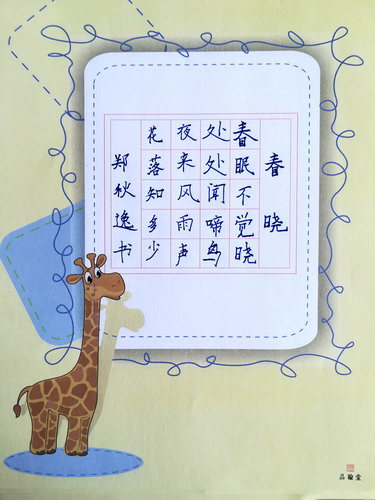 春晓
春眠不觉晓
处处闻啼鸟
夜来风雨声
花落知多少
郑秋逸书
品翰堂